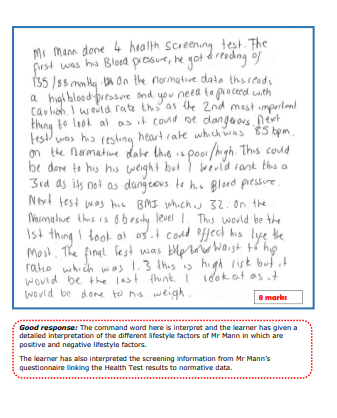 Mr Mann done 4 health screening test. The
first was his Blood pressure, he got a reading of
135/88 mmHg. On the normative data this reads
a high blood pressure and you need to proceed with
caution. I would rate this as the 2nd most important
thing to look at as it could be dangerous. Next
test was his resting heart rate which was 85 bpm.
on the Normative data this is poor/high. This could
be done to his his weight but I would rank this a
3rd as its not as dangerous to his Blood pressure.
Next test was his BMI which is 32. On the
Normative this is obesity level 1. This would be the
1st thing I look at as it could effect his life the
Most. The final test was waist to hip
ratio which was 1.3 this is high risk but it
would be the last think I look at as it
would be done to his weigh.
8 marks
Good response: The command word here is interpret and the learner has given a
detailed interpretation of the different lifestyle factors of Mr Mann in which are
positive and negative lifestyle factors.
The learner has also interpreted the screening information from Mr Mann's
questionnaire linking the Health Test results to normative data.